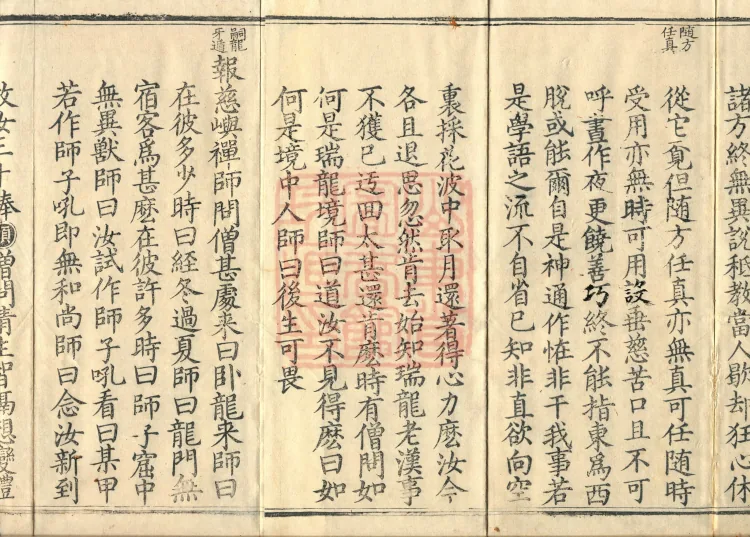 諸方終無異說秖教當人歇却狂心休
隨方任真
從它覔但随方任真亦無真可任随時
受用亦無時可用設垂慈苦口且不可
呼晝作夜更饒善巧終不能指東爲西
脫或能爾自是神通作怪非干我事若
是學語之流不自省已知非直欲向空
裏採花波中取月還著得心力麽汝今
各且退思忽然肯去始知瑞龍老漢事
不獲已迃回太甚還肯麽時有僧問如
何是瑞龍境師曰道汝不見得麽曰如
何是境中人師曰後生可畏
嗣龍牙遁
報慈嶼禪師問僧甚處来曰卧龍来師曰
在彼多少時曰経冬過夏師曰龍門無
宿客爲甚麽在彼許多時曰師子窟中
無異獸師曰汝試作師子吼看曰某甲
若作師子吼即無和尚師曰念汝新到
放汝三十棒
僧問情生智隔想變體